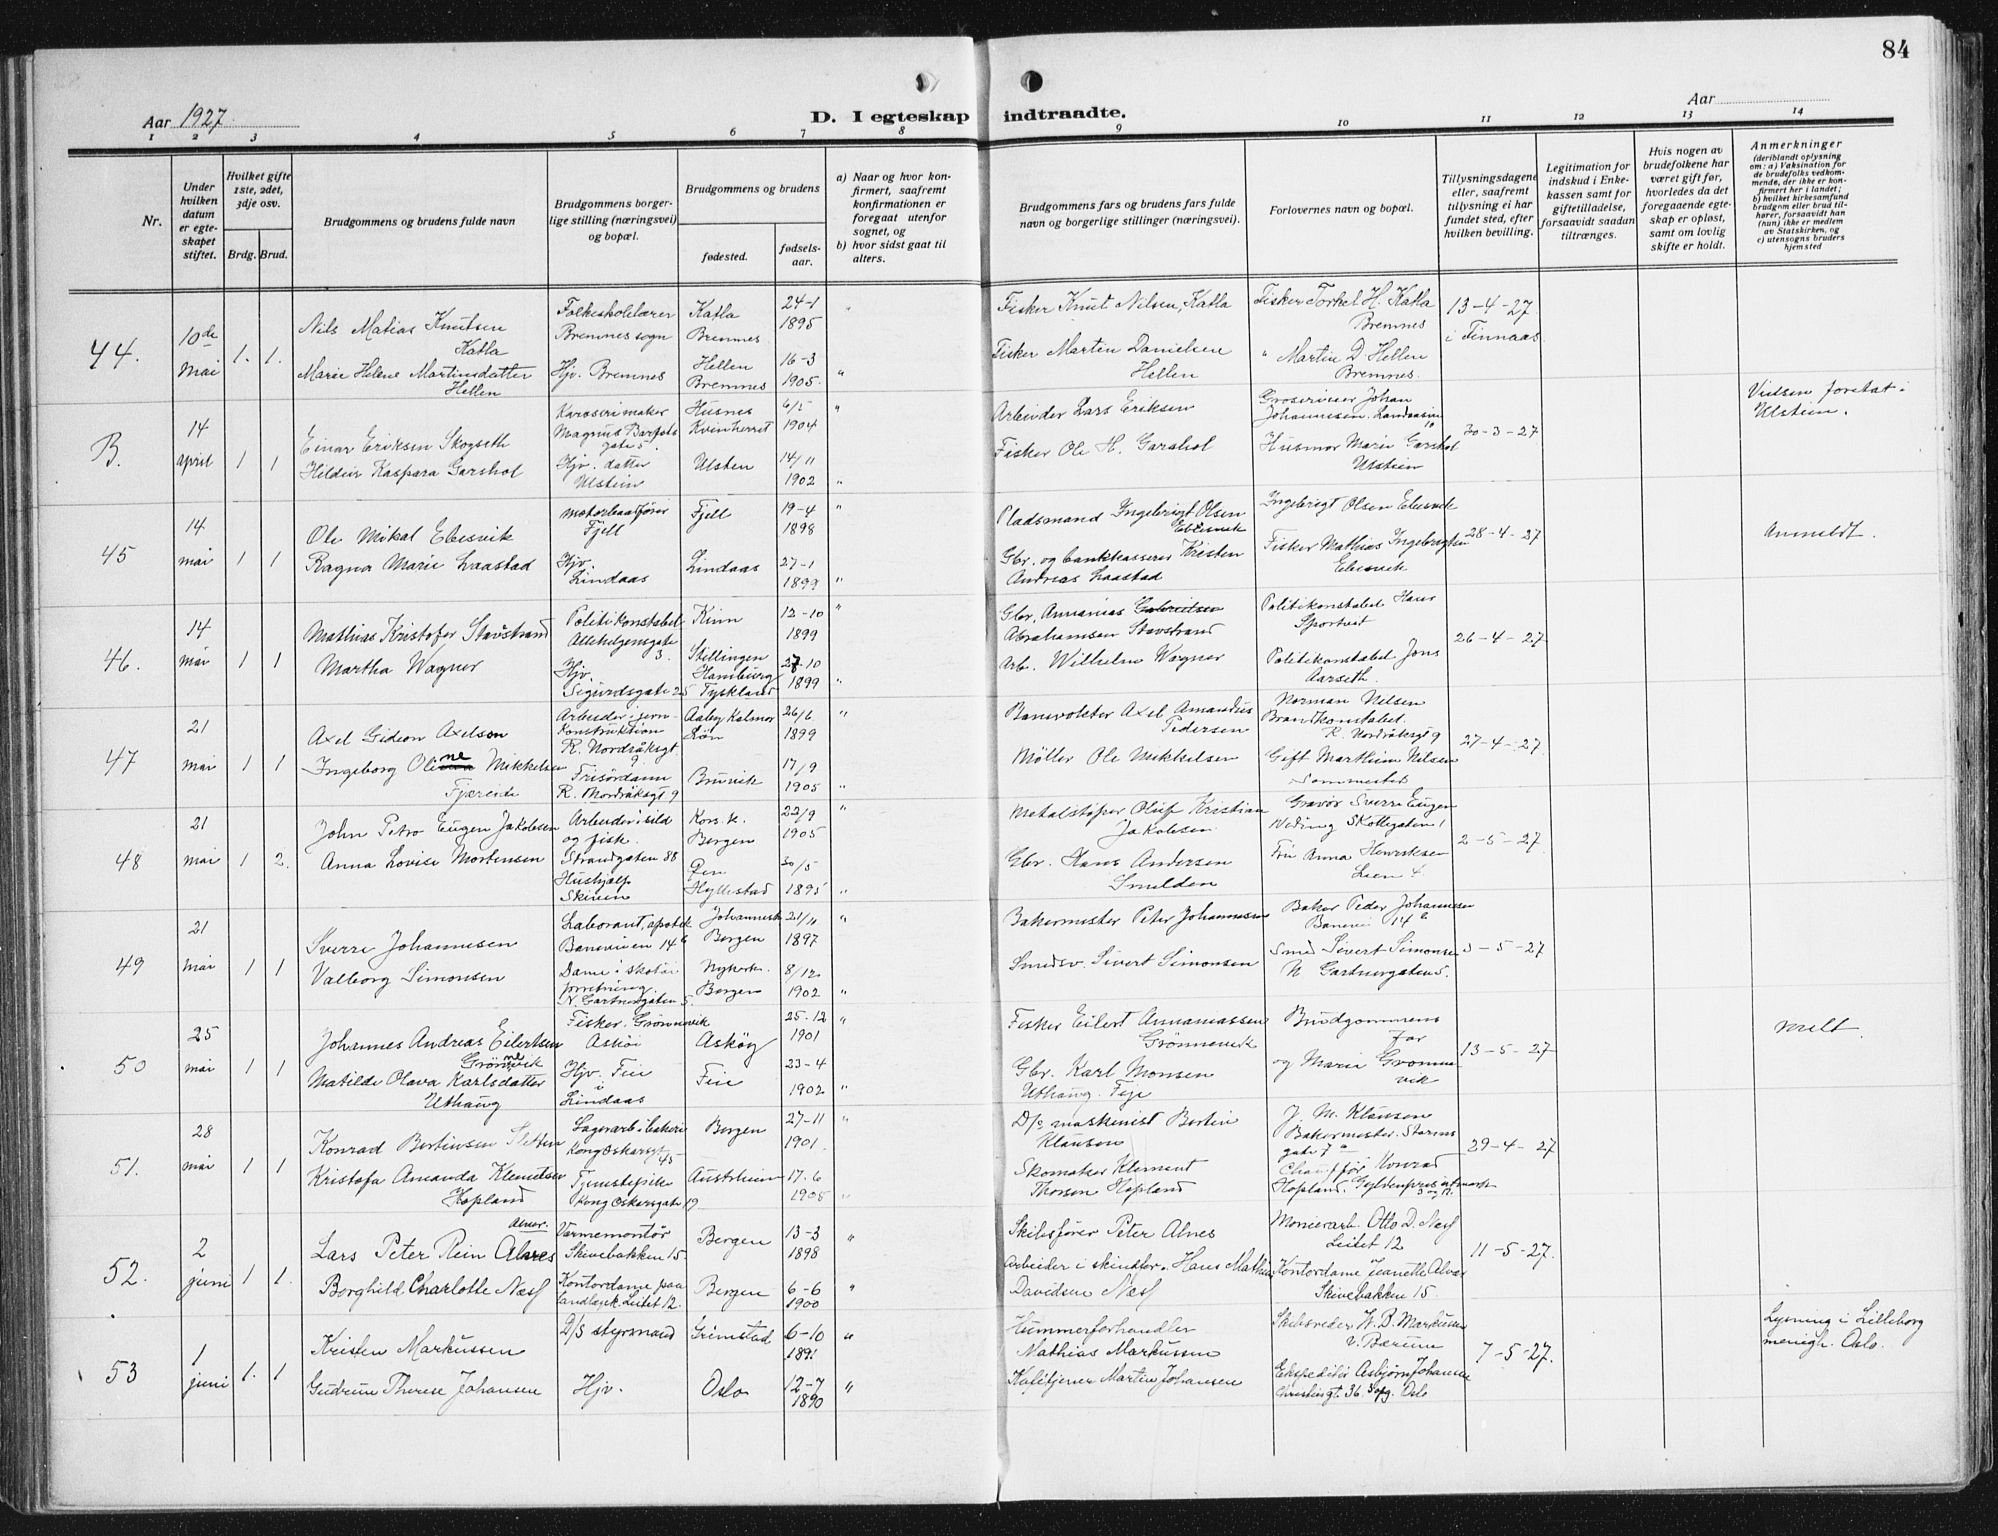 84
Aar 1927.
D. I egteskap indtraadte.
Aar
1 2 3 4 5 6 7 8 9 10 11 12 13 14
Nr.
Under hvilken datum er egteskapet stiftet.
Hvilket gifte 1ste, 2det, 3dje osv.
Brdg. Brud.
Brudgommens og brudens fulde navn
Brudgommens borgerlige stilling (næringsvei) og bopæl.
Brudgommens og brudens
fødested.
fødselsaar.
a) Naar og hvor konfirmert, saafremt konfirmationen er foregaat utenfor sognet, og
b) hvor sidst gaat til alters.
Brudgommens fars og brudens fars fulde navn og borgerlige stillinger (næringsvei).
Forlovernes navn og bopæl.
Tillysningsdagene eller, saafremt tillysning ei har fundet sted, efter hvilken bevilling.
Legitimation for indskud i Enkekassen samt for giftetilladelse, forsaavidt saadan tiltrænges.
Hvis nogen av brudefolkene har været gift før, hvorledes da det foregaaende egteskap er opløst, samt om lovlig skifte er holdt.
Anmerkninger
(deriblandt oplysning om: a) Vaksination for de brudefolks vedkommende, der ikke er konfirmert her i landet; b) hvilket kirkesamfund brudgom eller brud tilhører, forsaavidt han (hun) ikke er medlem av Statskirken, og c) utensogns bruders hjemsted
44. 10de Mai 1. 1.
Nils Matias Knutsen Katla
Folkeskolelærer Bremnes sogn
Katla Bremnes
24-1 1895
Fisker Knut Nilsen, Katla
Fisker Torkel H. Katla Bremnes
13-4-27 i Finnaas
Marie Helene Martinsdatter Hellen
Hjv. Bremnes
Hellen Bremnes
16-3 1905.
Fisker Martin Danielsen Hellen
" Martin D. Hellen Bremnes.
B. 14 april 1 1
Einar Eriksen Skogseth
Karosserimaker Magnus Barfots gate
Husnes Kvinherret
6/5 1904
Arbeider Lars Eriksen
Johan Johannessen.
30-3-27
Vielsen foretat i Ulstein.
Hildur Kaspara Garshol
Hjv. datter Ulstein
Ulsten
14/11 1902
Fisker Ole H. Garshol
Husmor Marie Garshol Ulstein
45 14 mai 1 1
Ole Mikal Ebesvik
Motorbaatfører Fjell
Fjell
19-4 1898
Pladsmand Ingebrigt Olsen Ebesvik
Ingebrigt Olsen Ebesvik
28-4-27
Anmeldt.
Ragna Marie Laastad
Hjv. Lindaas
Lindaas
27-1 1899
Gbr. og bankkasserer Kristen Andreas Laastad
Fisker Mathias Ingebrigtsen Ebesvik
46. 14 mai 1 1
Mathias Kristofer Stavstrand
Politikonstabel Allehelgensgate 3.
Kinn
12-10 1899
Gbr. Annanias Gabrielsen Abrahamsen Stavstrand
Politikonstabel Hans
26-4-27
Martha Wagner
Hjv. Sigurdsgate 25
Stellingen Hamburg Tyskland
27-10 1899
Arb. Wilhelm Wagner
Politikonstabel Jons Aarseth.
47 21 mai 1 1
Axel Gideon Axelson
Arbeider i jern-konstruktion R. Nordråksgt. 9
Aaby Kalmar Län
26/6 1899
Banevokter Axel Amandus Pedersen
Norman Nilsen Brandkonstabel. R. Nordråksgt 9
27-4-27
Ingeborg Oline Mikkelsen Fjæreide
Frisördame R. Nordråksgt 9
Bruvik
17/9 1905
Møller Ole Mikkelsen
Gift Marthine Nilsen
48 21 mai 1 2.
John Petro Eugen Jakobsen
Arbeider i sild og fisk. Strandgaten 88
Kors. k. Bergen
22/9 1905
Metalstøper Oluf Kristian Jakobsen
Gravör Sverre Eugen Skottegaten 1
2-5-27.
Anna Lovise Mortensen
Hushjælp Skiven
Hyllestad
30/5 1895
Gbr. Hans Andersen Smelden
Fru Anna Henriksen Lien 4
49 21 mai 1 1
Sverre Johannesen
Laborant, apotek Baneveien 14b
Johannesk Bergen
21/11 1897
Bakermester Peter Johannesen
Baker Peder Johannesen 14b
3-5-27
Valborg Simonsen
Dame i skotöiforretning. N. Gartnergaten 5.
Nykirk. Bergen
8/12 1902
Smedsv. Sivert Simonsen
Smed Sivert Simonsen N. Gartnergaten 5.
50 25 mai 1 1
Johannes Andreas Eilertsen Grönnevik
Fisker. Grönnevik Askøi
Askøy
25-12 1901
Fisker Eilert Annaniassen Grönnevik
Brudgommens far
13-5-27
Matilde Olava Karlsdatter Uthaug
Hjv. Feie i Lindaas
Feie
23-4 1902
Gbr. Karl Monsen Uthaug. Feje
og Maria Gronnevik
51. 28 mai 1 1
Konrad Bertinsen Sletten
Lagerarb. i bakeri Kong Oskarsgt 45
Bergen
27-11 1901.
D/s maskinist Bertin Klausen
J. M. Klausen Bakermester.
29-4-27
Kristofa Amanda Klemetsen Hopland
Tjenestepike Kong Oskarsgate 19
Austrheim
17-6 1905
Skomaker Klement Thorsen Hopland
Chauffør Konrad Hopland.
52. 2 juni 1 1.
Lars Peter Rein Alnes
Varmemontør Skivebakken 15
Bergen
13-3 1898
Skibsfører Peter Alnes
Otto D. Næss Leitet 12
11-5-27.
Borghild Charlotte Næss
Kontordame paa Leitet 12.
Bergen
6-6 1900
Arbeider i skindfor. Hans Mathias Davidsen Næss
Kontordame Jeanette Skivebakken 15.
53 1 juni 1. 1
Kristen Markussen
D/S styrmand
Grimstad
6-10 1891
Hummerforhandler Mathias Markussen
Skibsreder W. B. Markussen V. Bærum
7-5-27.
Lysning i Lilleborg menigh. Oslo.
Gudrun Therese Johansen
Hjv.
Oslo
12-7 1890
Martin Johansen
Ekspeditør Asbjørn Johansen 36 Oslo